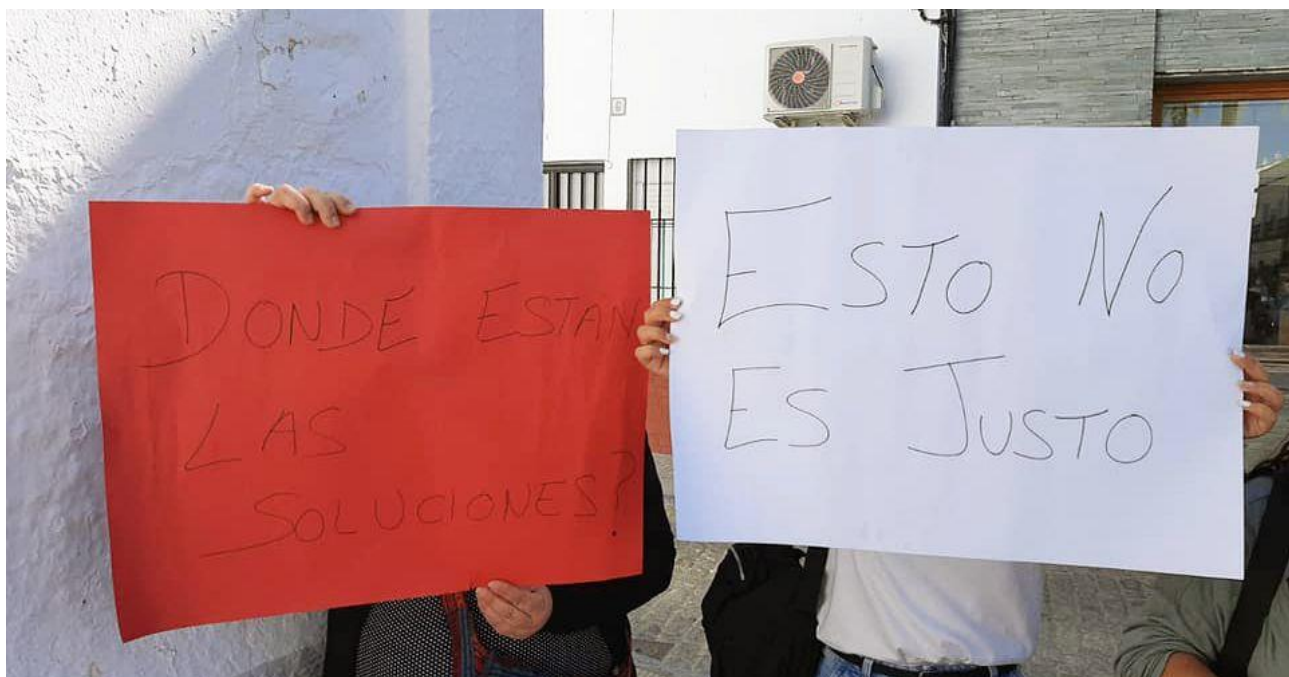 DONDE ESTAN
LAS
SOLUCIONES?
ESTO NO
ES JUSTO
6